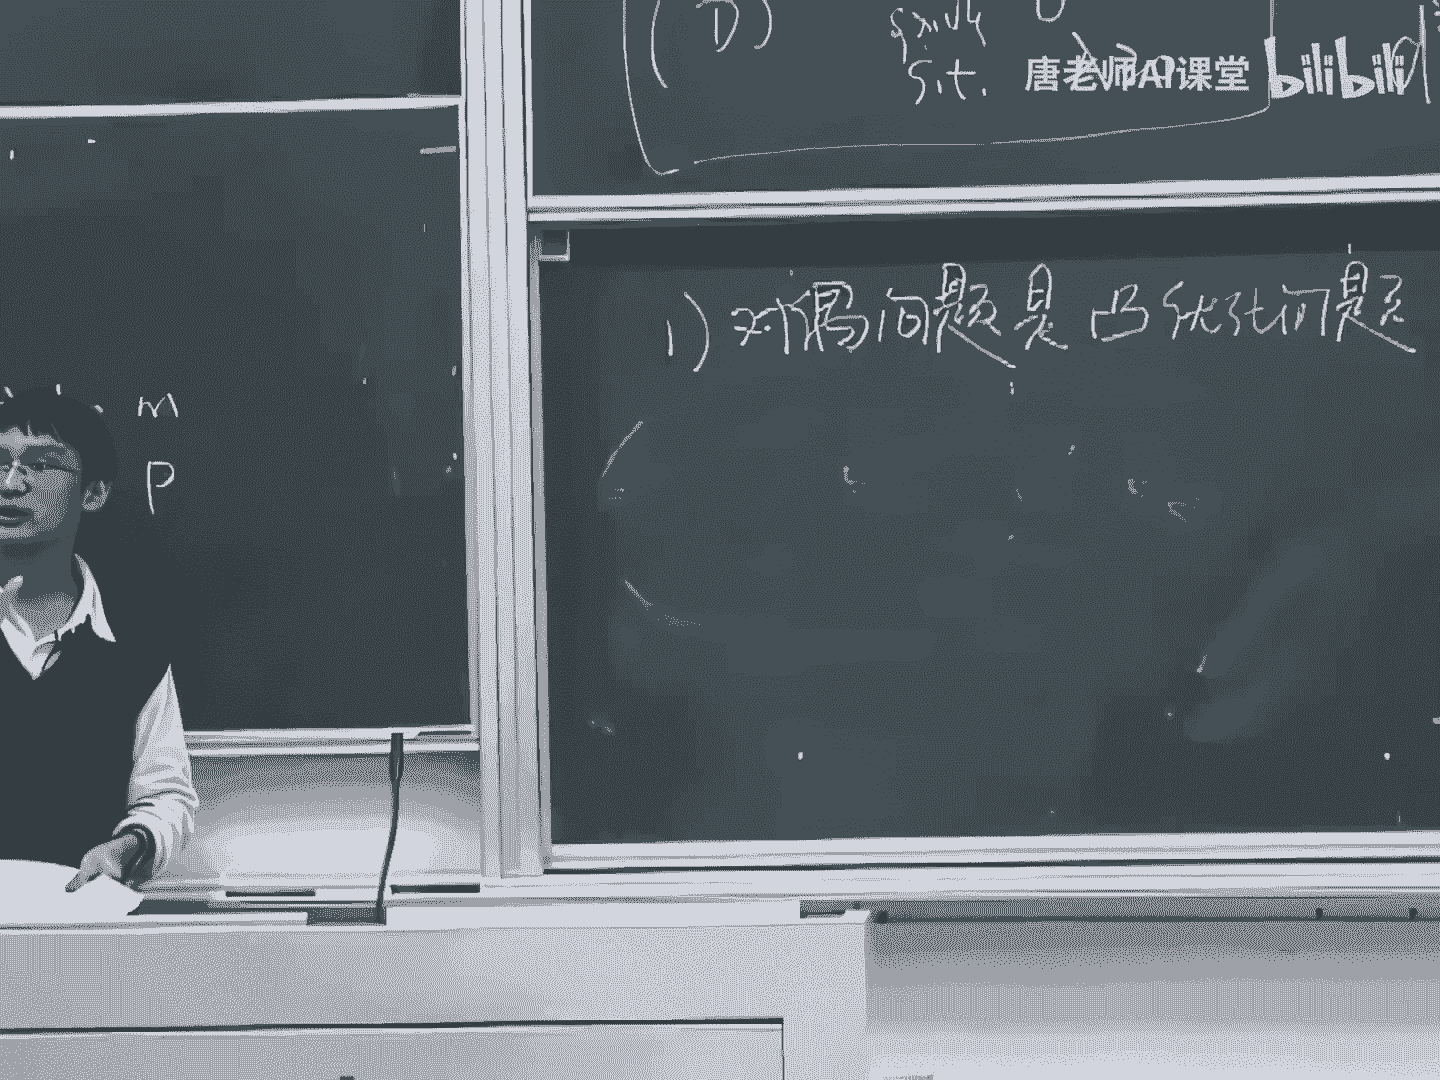 (D)
s.t.
唐老师AI课堂 bilibili
m
P
1) 对偶问题是凸优化问题